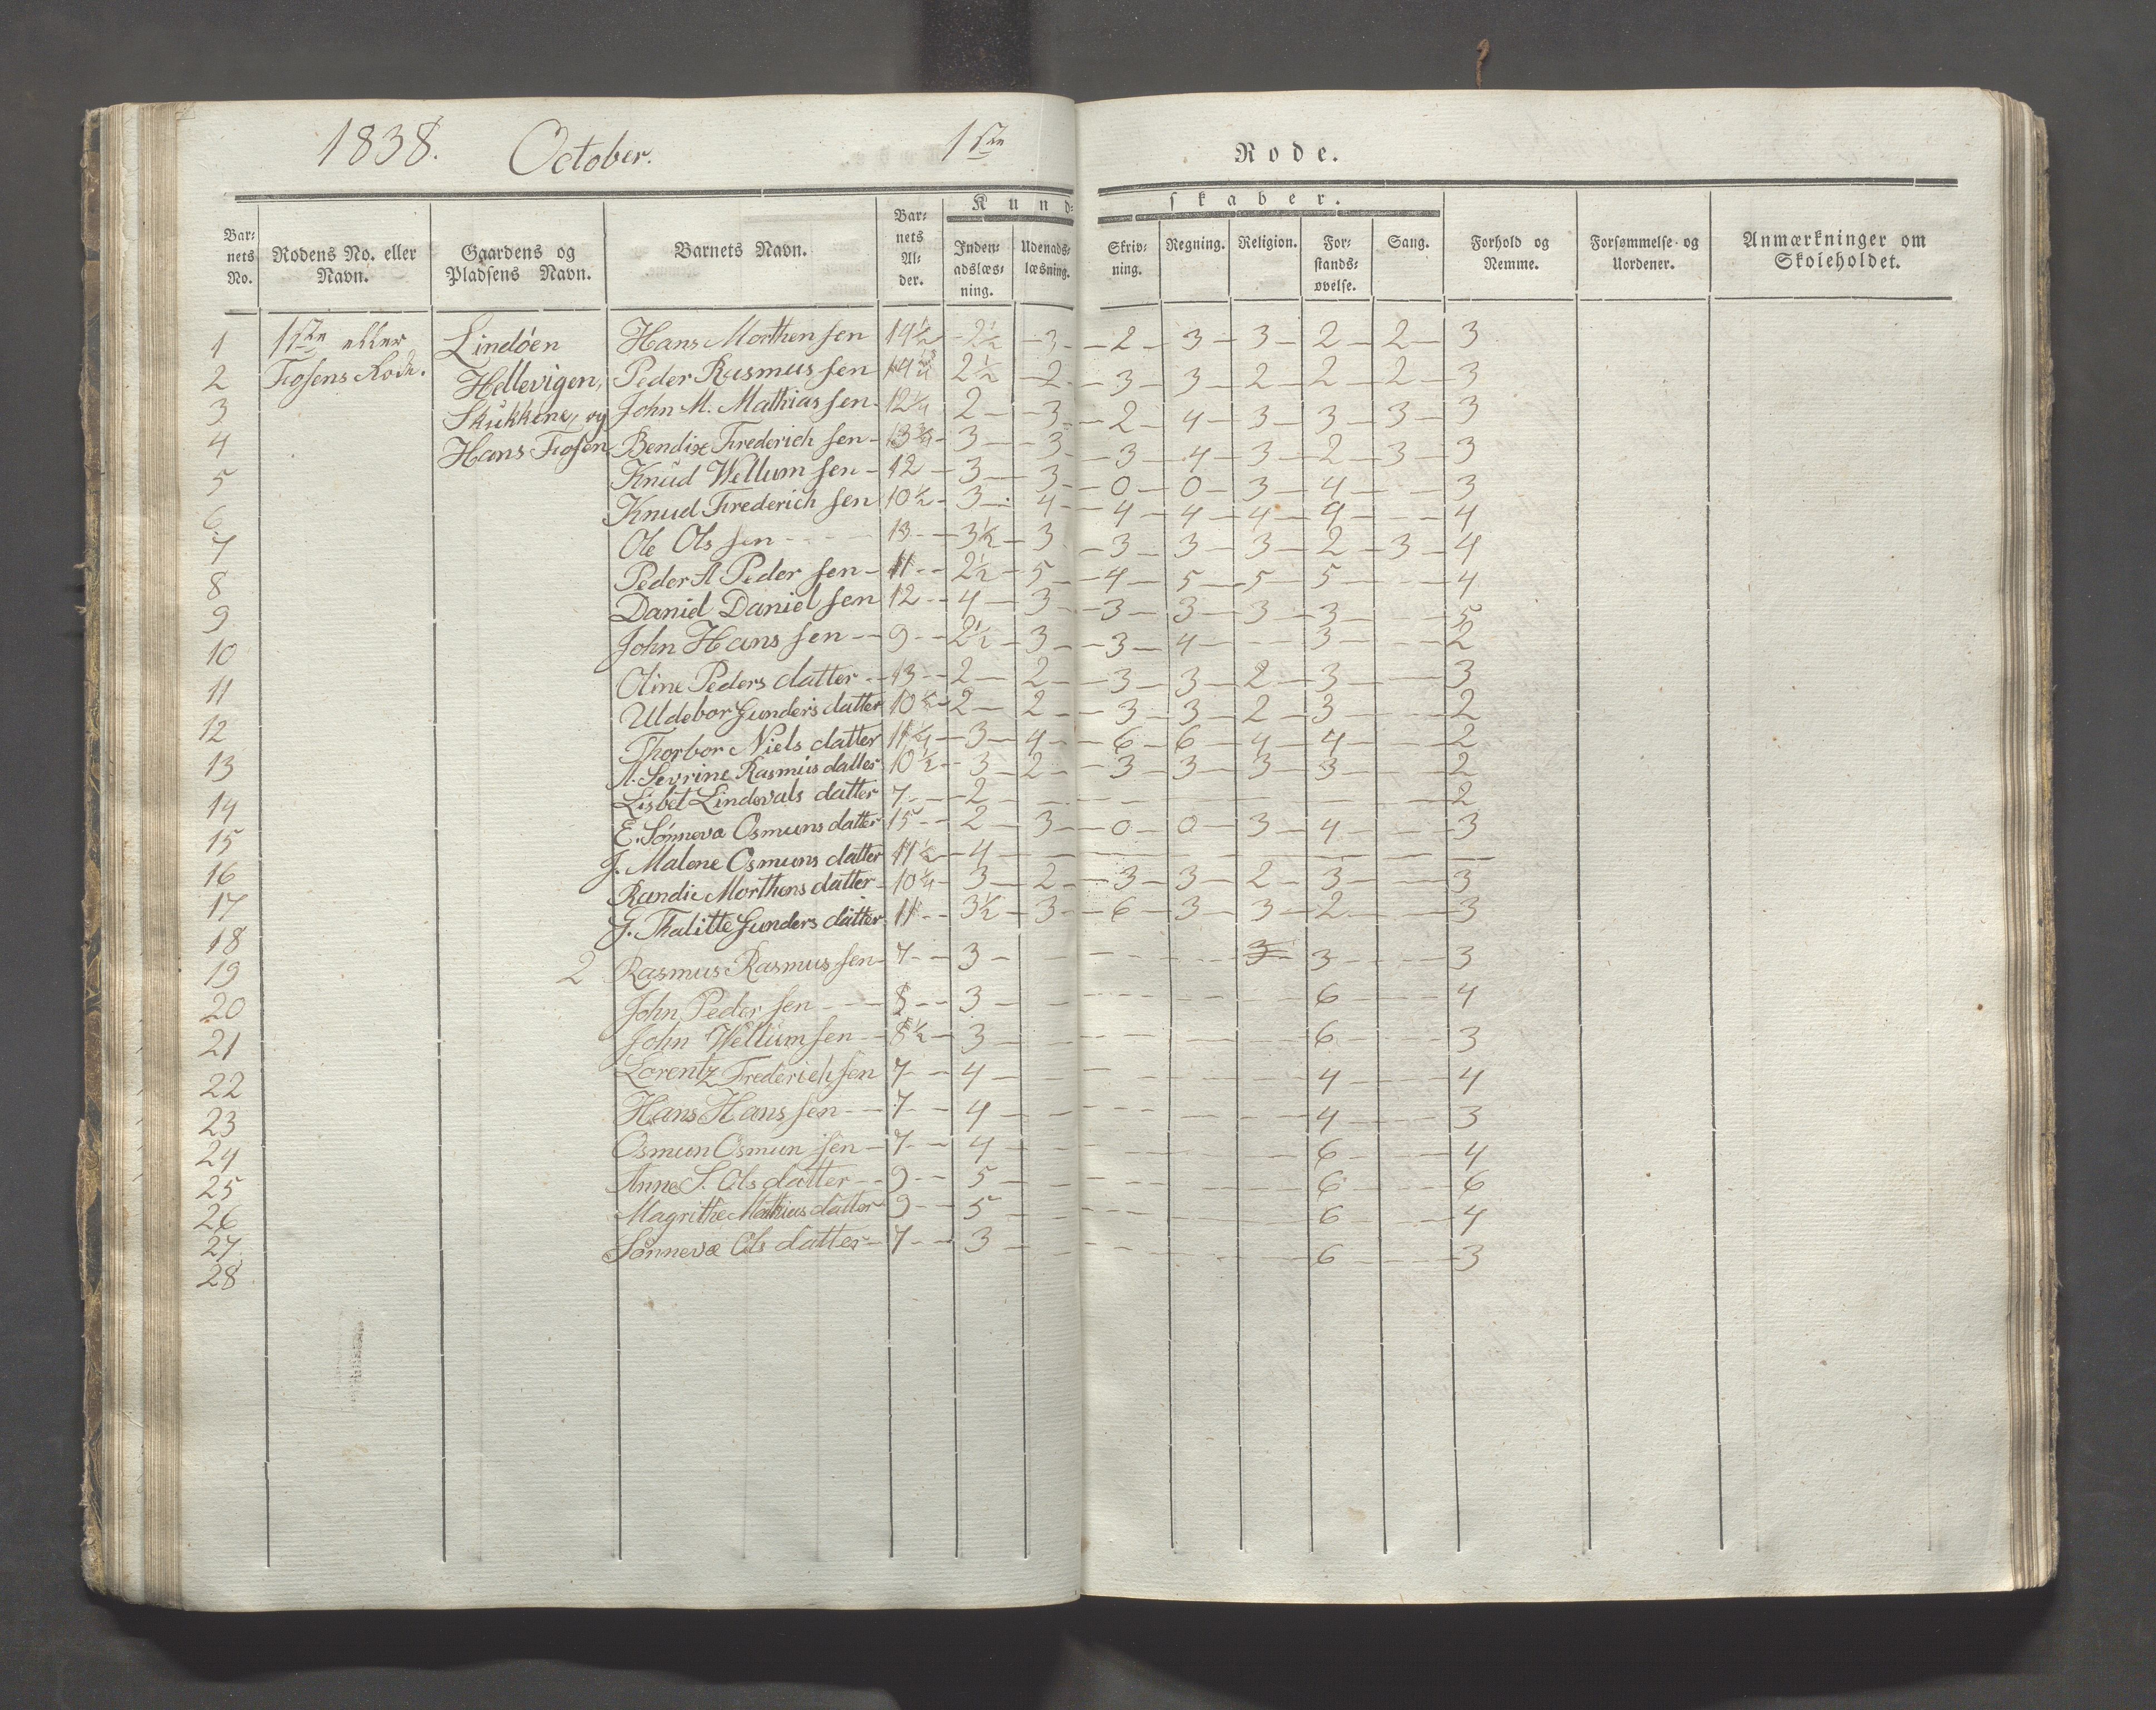 1838. October. 1ste Rode.
Kundskaber.
Barnets No. Rodens No. eller Navn. Gaardens og Pladsens Navn. Barnets Navn. Barnets Alder. Indenadslæsning. Udenadslæsning. Skrivning. Regning. Religion. Forstandsøvelse. Sang. Forhold og Nemme. Forsømmelse og Uordener. Anmærkninger om Skoleholdet.
1 1ste eller Lindöen Hans Morthensen 14½ 2½ 3 2 3 3 2 2 3
2 Fosens Rode. Hellevigen, Peder Rasmussen 2½ 2 3 3 2 2 2 3
3 og John M. Mathiassen 12¼ 2 3 2 4 3 3 3 3
4 Hans Fosen Bendix Frederichsen 13¾ 3 3 3 4 3 2 3 3
5 Knud Wellumsen 12 3 3 0 0 3 4 3
6 Knud Frederichsen 10½ 3 4 4 4 4 4 4
7 Ole Olssen 13 3½ 3 3 3 3 2 3 4
8 Peder A Pedersen 11 2½ 5 4 5 5 5 4
9 Daniel Danielsen 12 4 3 3 3 3 3 5
10 John Hanssen 9 2½ 3 3 4 3 2
11 Oline Pedersdatter 13 2 2 3 3 2 3 3
12 Uldebor Gundersdatter 10½ 2 2 3 3 2 3 2
13 Thorbor Nielsdatter 11¼ 3 4 6 6 4 4 2
A. Sevrine Rasmusdatter 10½ 3 2 3 3 3 3 2
14 Lisbet Lindevalsdatter 7 2 2
15 E. Sönneva Osmunsdatter 15 2 3 0 0 3 4 3
16 J. Malene Osmunsdatter 11½ 4
17 Randie Morthensdatter 10¼ 3 2 3 3 2 3 3
18 G. Thalitte Gundersdatter 11 3½ 3 6 3 3 2 3
19 2 Rasmus Rasmussen 7 3 3 3 3
20 John Pedersen 8 3 6 4
21 John Wellumsen 8½ 3 6 3
22 Lorentz Frederichsen 7 4 4 4
23 Hans Hanssen 7 4 4 3
24 Osmun Osmunsen 7 4 6 4
25 Anne S. Olsdatter 9 5 6 6
26 Magrithe Mathiasdatter 9 5 6 4
27 Sönneva Olsdatter 7 3 6 3
28